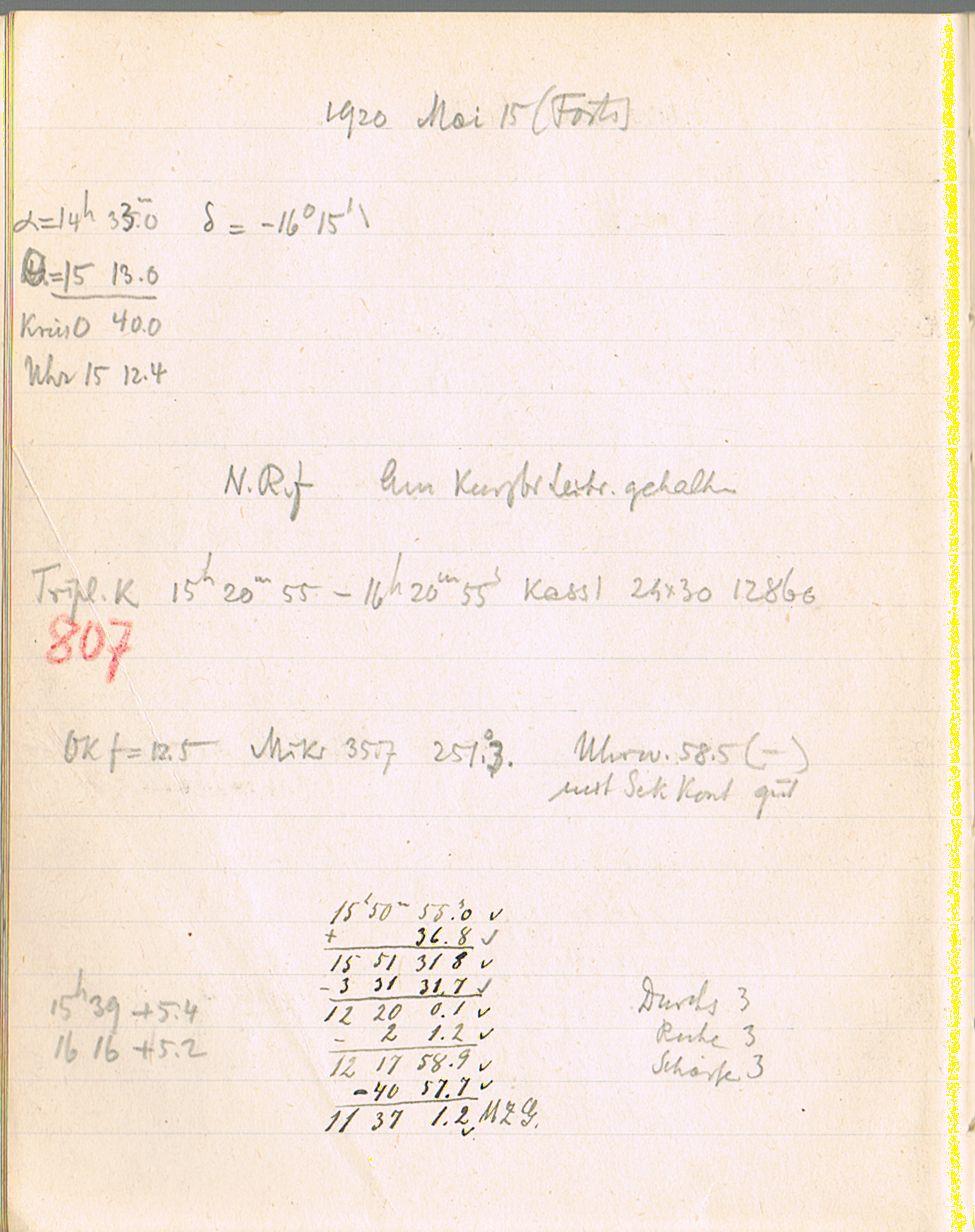 1920 Mai 15 (Forts)
α=14h 33m.0 δ = -16° 15'
Θ=15 13.0
Kreis 0 40.0
Uhr 15 12.4
N.R.f Am gehalten
Tripl. K 15h 20m 55 – 16h 20m 55s Kass 1 24x30 12860
807
OK f = 12.5 Mikr 35.7 251°.3. Uhrw. 58.5 (–)
mit Sek Kont gut
15h 50m 55s.0 ✓
+ 36.8 ✓
15 51 31 8 ✓
-3 31 31.7 ✓
12 20 0.1 ✓
- 2 1.2 ✓
12 17 58.9 ✓
-40 57.7 ✓
11 37 1.2 ✓ M.Z.G.
15h 39 +5.4
16 16 +5.2
Durchs 3
Ruhe 3
Schärfe 3